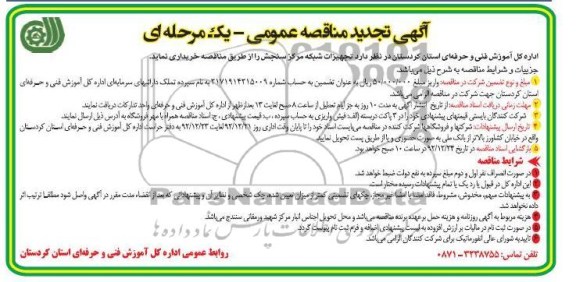 آگهی تجدید مناقصه عمومی - یک مرحله ای
اداره کل آموزش فنی و حرفه‌ای استان کردستان در نظر دارد تجهیزات شبکه مرکز سنجش را از طریق مناقصه خریداری نماید.
جزییات و شرایط مناقصه به شرح ذیل می‌باشد.
۱ مبلغ و نوع تضمین شرکت در مناقصه: واریز مبلغ ۵۰/۰۰۰/۰۰۰ ریال به عنوان تضمین به حساب شماره به نام سپرده تملک دارائیهای سرمایه‌ای اداره کل آموزش فنی و حرفه‌ای
استان کردستان جهت شرکت در مناقصه
۲ مهلت زمانی دریافت اسناد مناقصه: از تاریخ انتشار آگهی به مدت ۱۰ روز به جز ایام تعطیل از ساعت ۸ صبح لغایت ۱۳ بعدازظهر از اداره کل آموزش فنی و حرفه‌ای واحد تدارکات دریافت نمایند.
۳ شرکت کنندگان بایستی قیمتهای پیشنهادی خود را در ۳ پاکت دربسته (الف: فیش واریزی به حساب سپرده، ب: قیمت پیشنهادی، ج: اسناد مناقصه همراه با مهر فروشگاه به آدرس ذیل ارسال نمایند.
۴ تاریخ ارسال پیشنهادات: شرکتها و فروشگاهها شرکت کننده در مناقصه می‌بایست اسناد خود را تا پایان وقت اداری روز لغایت ۹۲/۱۲/۲۳ به دفتر حراست اداره کل آموزش فنی و حرفه‌ای استان کردستان
واقع در خیابان کشاورز بالاتر از بانک ملی به صورت حضوری و یا از طریق پست تحویل نمایند.
۵ بازگشایی اسناد مناقصه در تاریخ ۹۲/۱۲/۲۴ در ساعت ۱۰ صبح خواهد بود.
شرایط مناقصه
در صورت انصراف نفر اول و دوم مبلغ سپرده به نفع دولت ضبط خواهد شد.
این اداره کل در قبول یا رد یک یا تمام پیشنهادات رسیده مختار است.
به پیشنهادات مبهم، مخدوش، مشروط، فاقد امضا
داده نخواهد شد.
هزینه مربوط به آگهی روزنامه و هزینه حمل بر عهده برنده مناقصه می‌باشد و محل تحویل اجناس انبار مرکز شهید ورمقانی سنندج می‌باشد.
در صورت ثبت نام در مالیات بر ارزش افزوده به لیست پیشنهادی اضافه و فرم ثبت نام پیوست گردد.
تاییدیه شورای عالی انفورماتیک برای شرکت کنندگان الزامی می‌باشد.
تلفن تماس: ۳۲۳۸۷۵۵-۰۸۷۱
روابط عمومی اداره کل آموزش فنی و حرفه‌ای استان کردستان
ParsNamadData